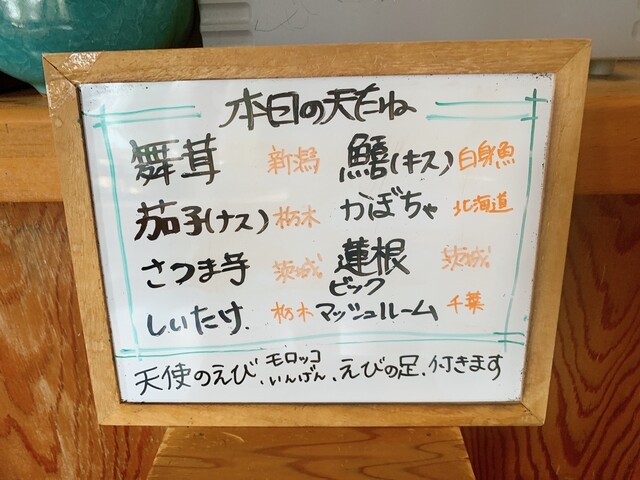 本日の天たね
舞茸 新潟 鱚(キス) 白身魚
茄子(ナス) 栃木 かぼちゃ 北海道
さつま芋 茨城 蓮根 茨城
しいたけ 栃木 ビックマッシュルーム 千葉
天使のえび、モロッコいんげん、えびの足、付きます